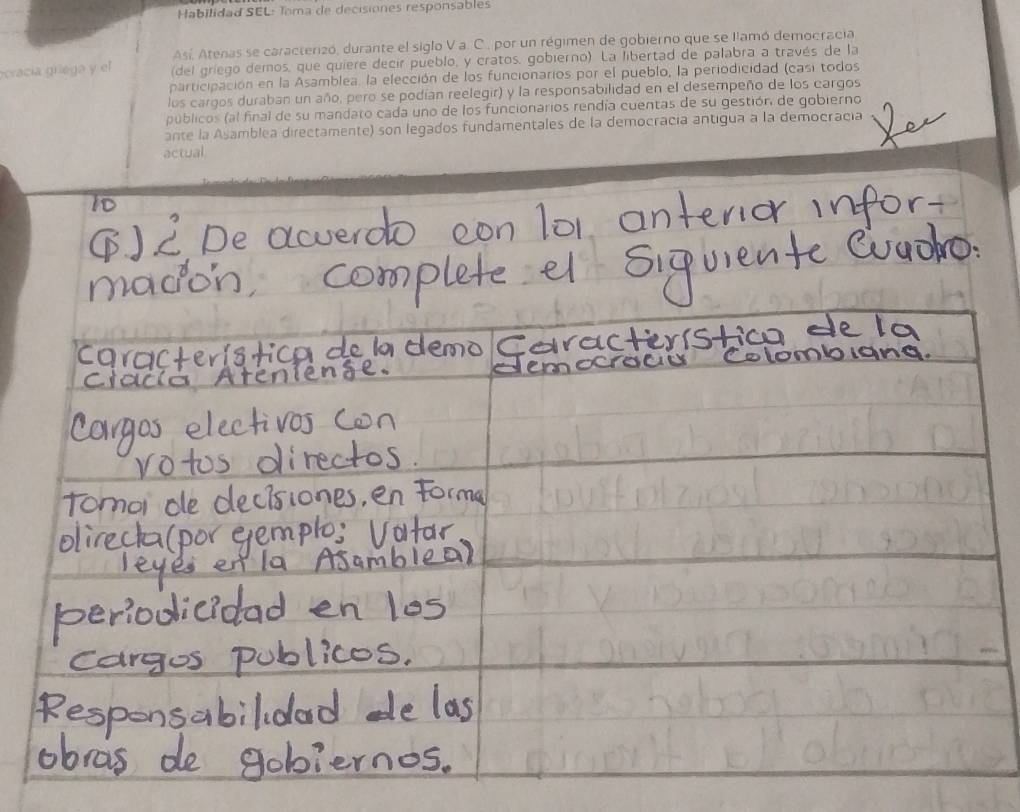 Habilidad SEL: Toma de decisiones responsables
ocracia griega y el
Así, Atenas se caracterizó, durante el siglo V a. C., por un régimen de gobierno que se llamó democracia
(del griego demos, que quiere decir pueblo, y cratos, gobierno). La libertad de palabra a través de la
participación en la Asamblea, la elección de los funcionarios por el pueblo, la periodicidad (casi todos
los cargos duraban un año, pero se podían reelegir) y la responsabilidad en el desempeño de los cargos
públicos (al final de su mandato cada uno de los funcionarios rendía cuentas de su gestión de gobierno
ante la Asamblea directamente) son legados fundamentales de la democracia antigua a la democracia
actual.
10
¿De acuerdo con la anterior infor-
mación, complete el siguiente cuadro:
característica de la demo
cracia Ateniense.
Característica de la
democracia colombiana.
Cargos electivos con
votos directos.
Toma de decisiones, en Forma
directa (por ejemplo; Votar
leyes en la Asamblea)
periodicidad en los
cargos publicos.
Responsabilidad de las
obras de gobiernos.